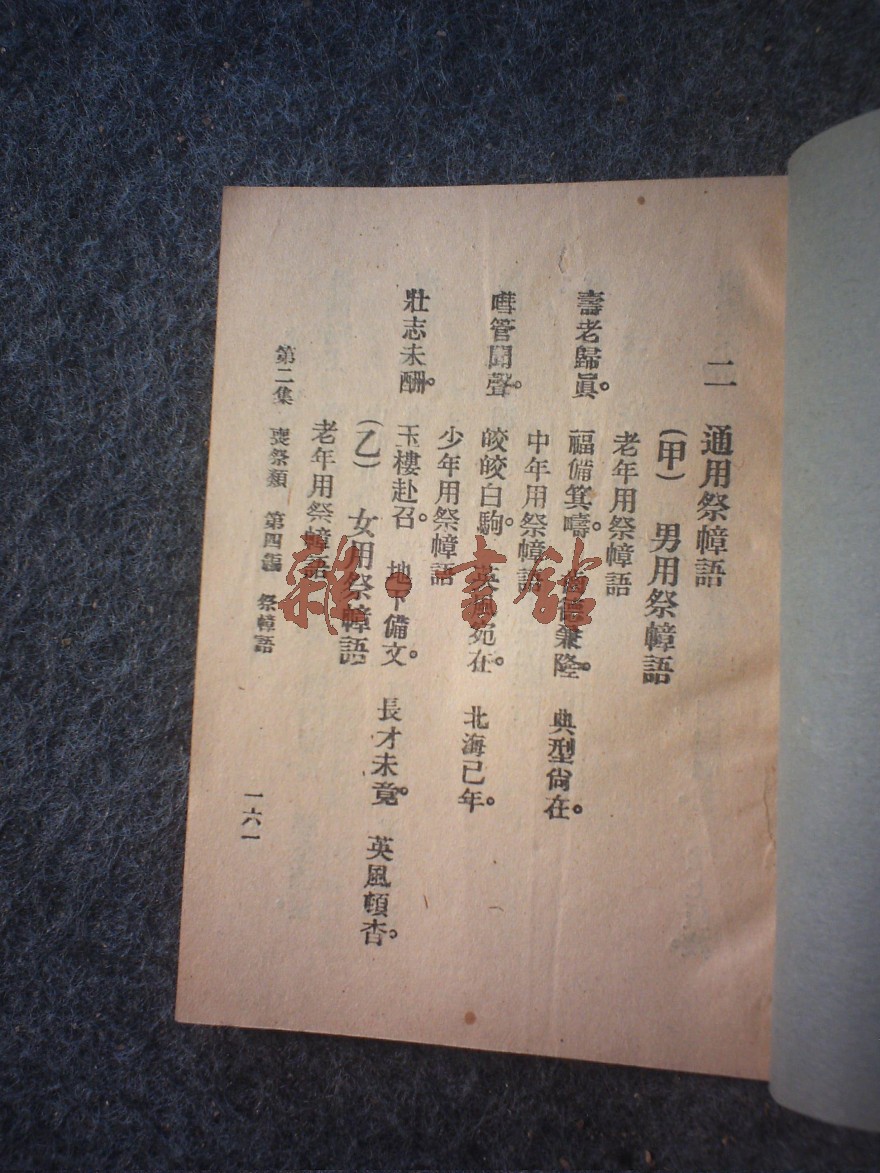 二 通用祭幛語
(甲) 男用祭幛語
老年用祭幛語
壽老歸眞。 福備箕疇。 德兼隆。 典型尙在。
中年用祭幛語
嘒管聞聲。 皎皎白駒。 英風宛在。 北海已年。
少年用祭幛語
壯志未酬。 玉樓赴召。 地下備文。 長才未竟。 英風頓杳。
(乙) 女用祭幛語
老年用祭幛語
第二集 喪祭類 第四編 祭幛語 一六一
雜·書館